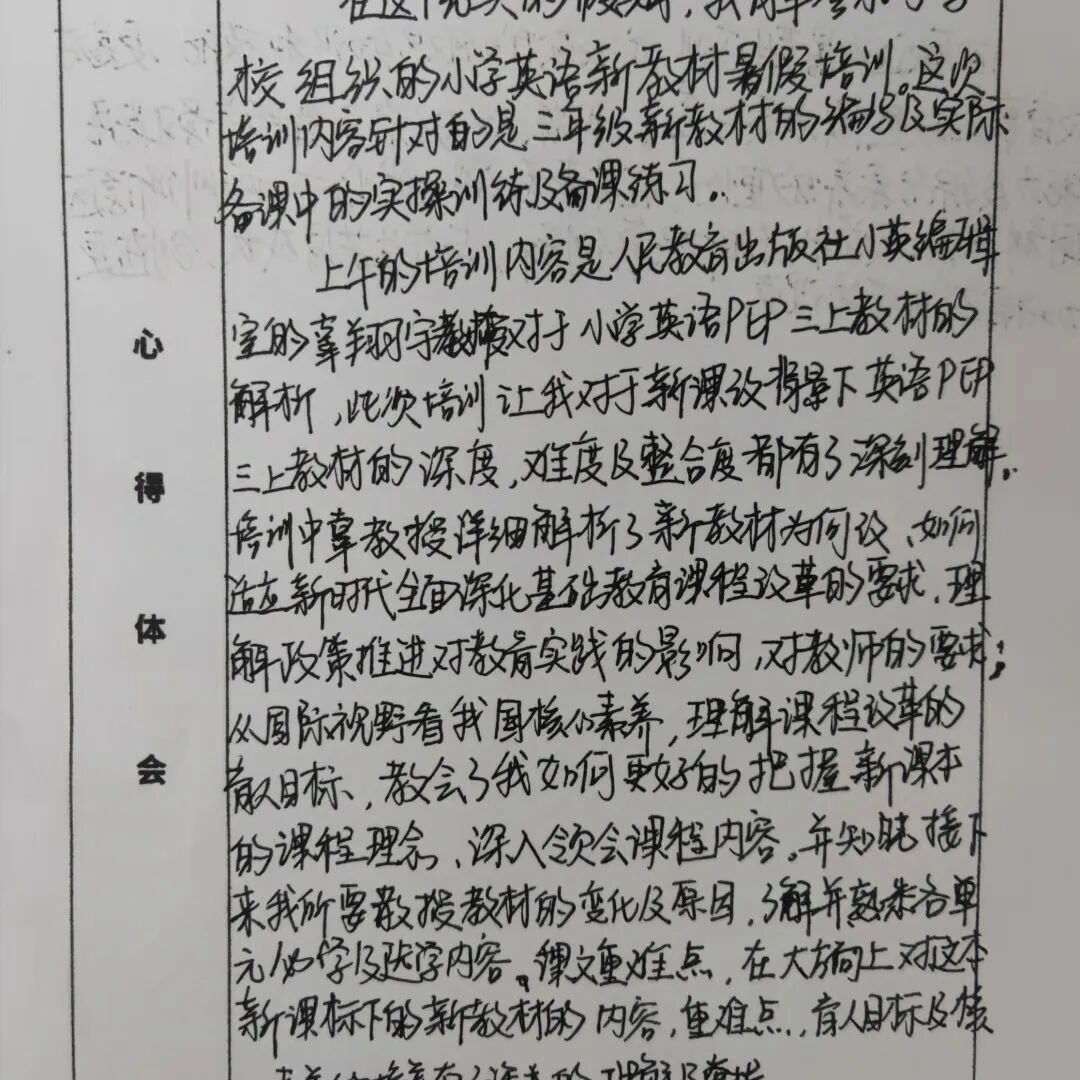 校组织的小学英语新教材暑假培训。这次
培训内容针对的是三年级新教材的编写及实际
备课中的实操训练及备课练习。
上午的培训内容是人民教育出版社小英编辑
室的辜翔宇教授对于小学英语PEP三上教材的
解析,此次培训让我对于新课改背景下英语PEP
三上教材的深度,难度及整合度都有了深刻理解。
培训中辜教授详细解析了新教材为何改、如何
适应新时代全面深化基础教育课程改革的要求、理
解政策推进对教育实践的影响,对教师的要求;
从国际视野看我国核心素养,理解课程改革的
育人目标,教会了我如何更好的把握新课本
的课程理念、深入领会课程内容。并知晓接下
来我所要教授教材的变化及原因,了解并熟悉各单
元必学及选学内容。课文重难点,在大方向上对这本
新课标下的新教材的内容,重难点,育人目标及核
心
得
体
会